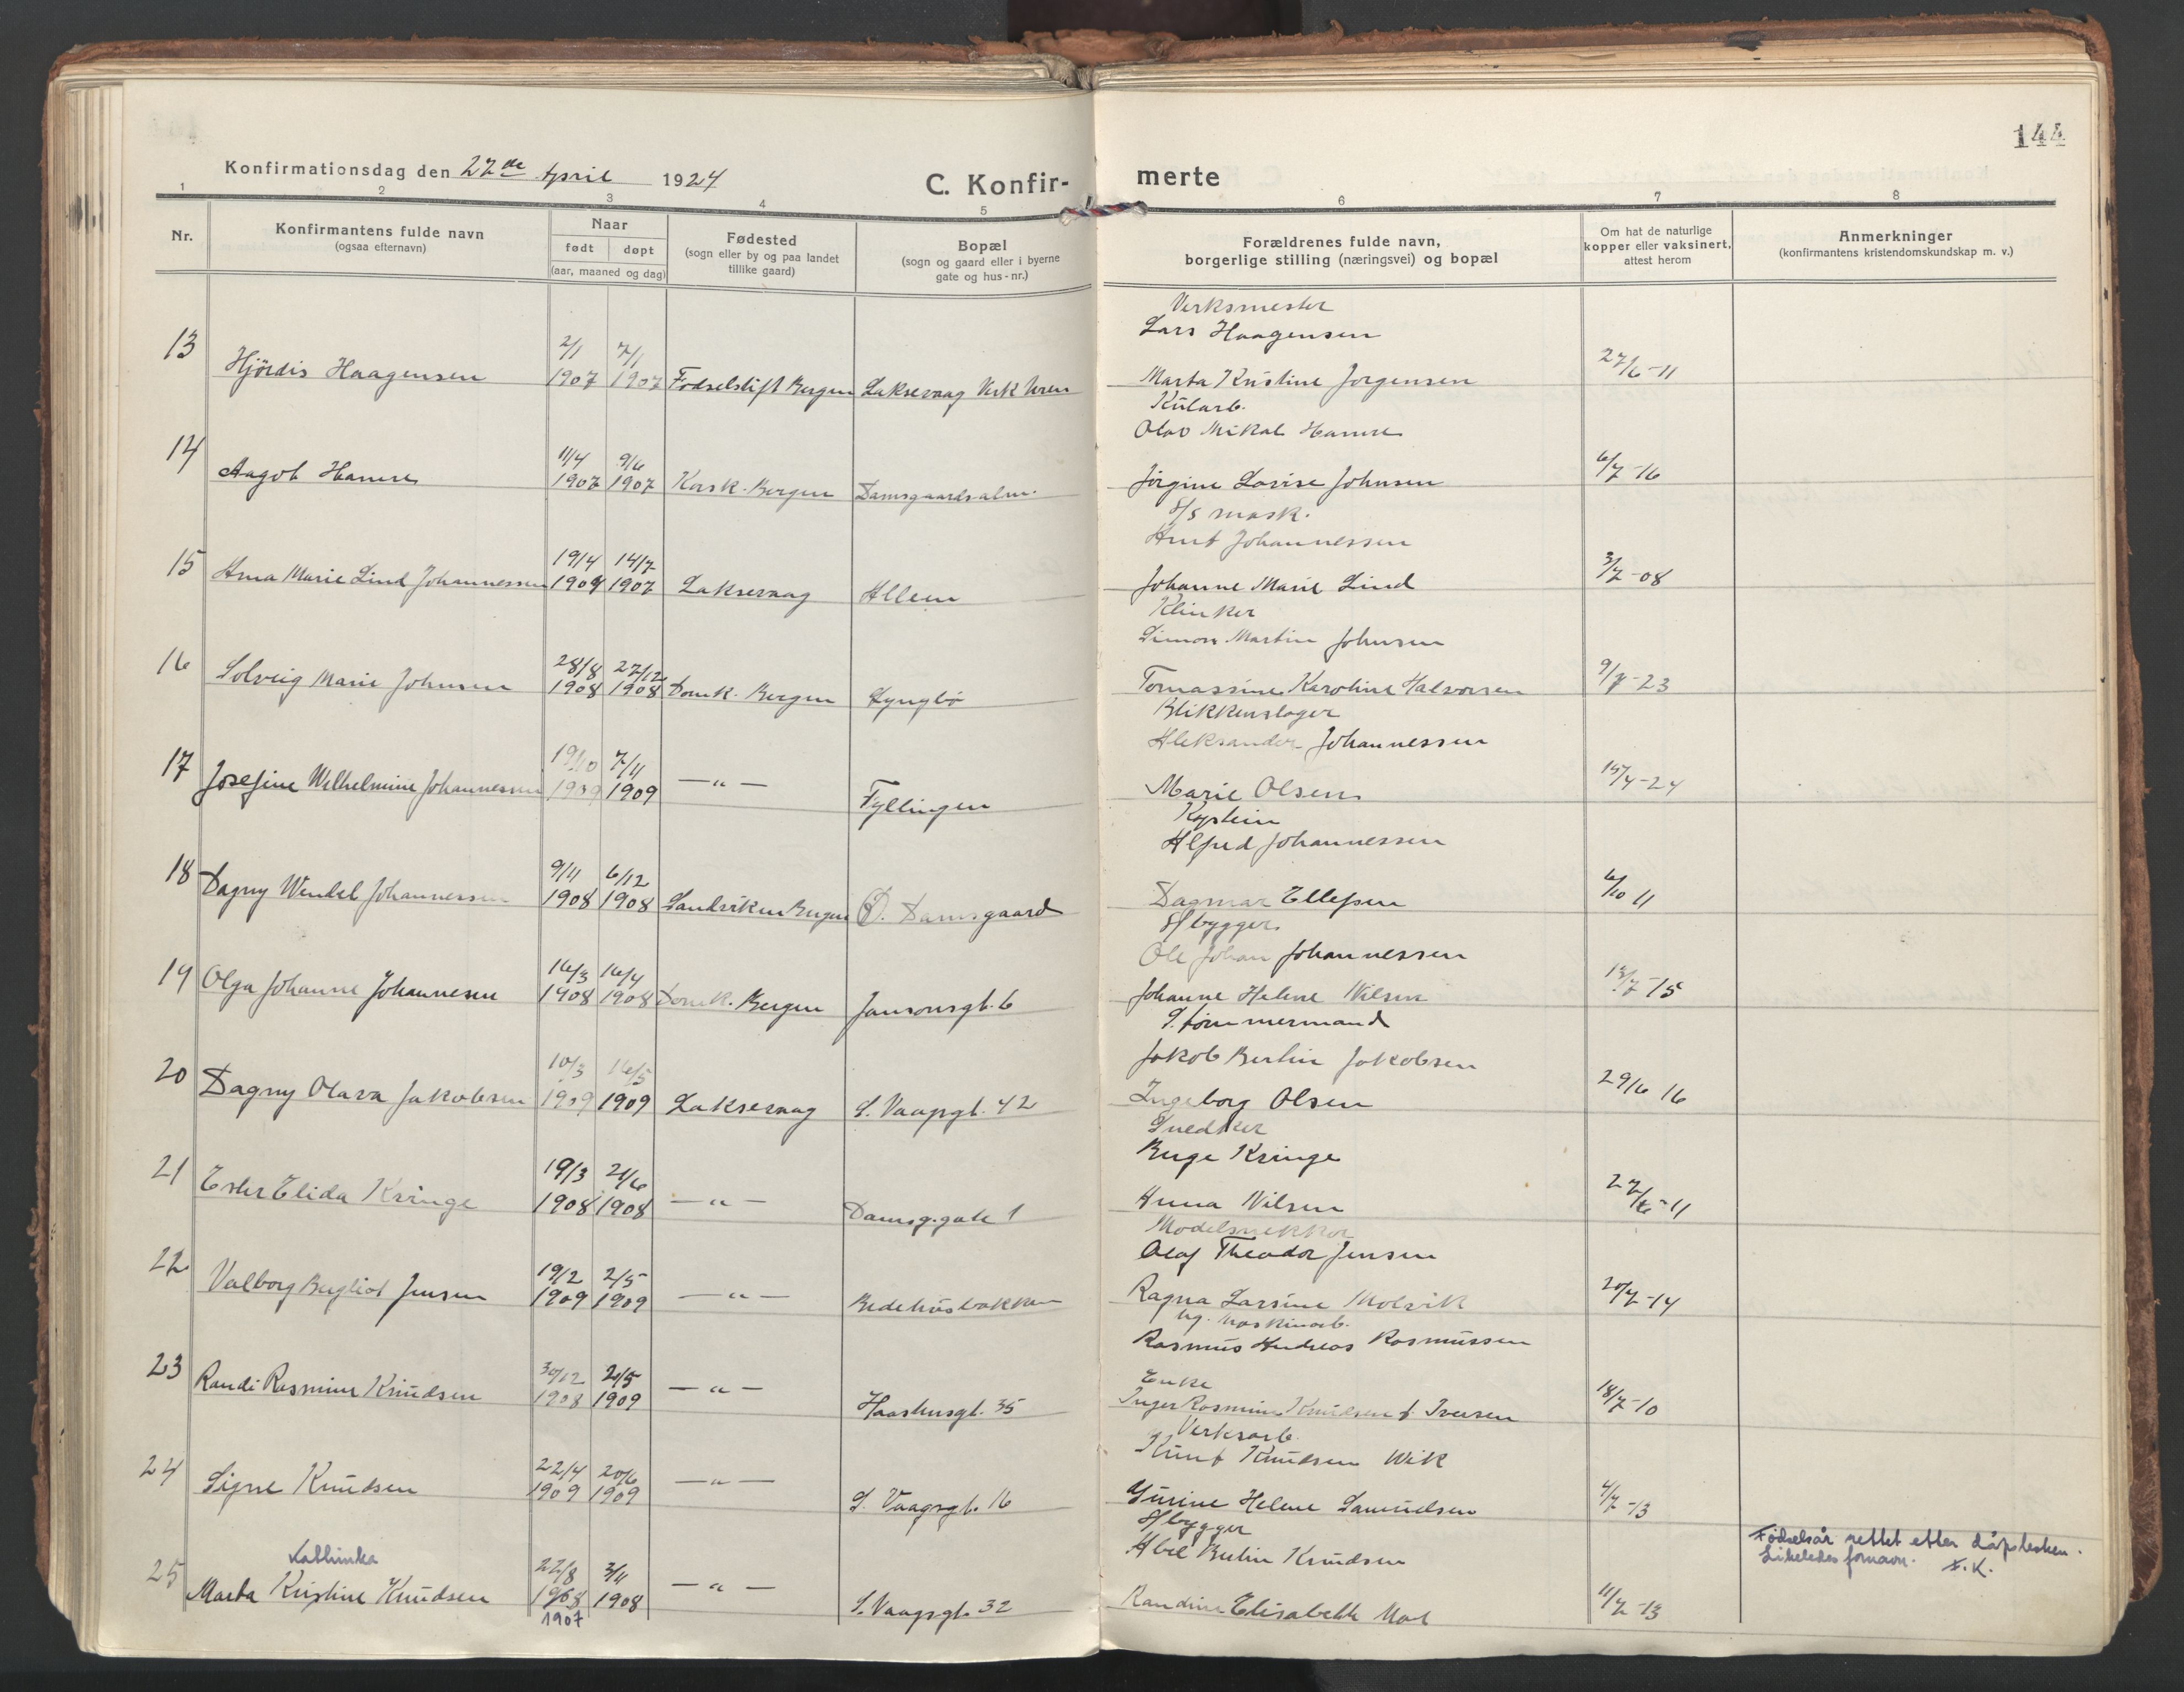 144
Konfirmationsdag den 27de April 1924
C. Konfir-
merte
1 2 3 4 5 6 7 8
Nr.
Konfirmantens fulde navn
(ogsaa efternavn)
Naar
født døpt
(aar, maaned og dag)
Fødested
(sogn eller by og paa landet
tillike gaard)
Bopæl
(sogn og gaard eller i byerne
gate og hus-nr.)
Forældrenes fulde navn,
borgerlige stilling (næringsvei) og bopæl
Om hat de naturlige
kopper eller vaksinert,
attest herom
Anmerkninger
(konfirmantens kristendomskundskap m. v.)
Verksmester
Lars Haagensen
13 Hjördis Haagensen 2/1 1907 7/1 1907 Fødselstift Bergen Laksevaag Verk
Marta Kristine Jorgensen 27/6-11
Kularb.
Olav Mikal Hamre
14 Aagot Hamre 11/4 1907 9/6 1907 Korsk. Bergen Damsgaardsalm.
Jörgine Lovise Johnsen 6/7-16
S/S mask.
Knut Johannessen
15 Anna Marie Lind Johannessen 19/4 14/7 1907 Laksevaag Alleen
Johanne Marie Lind 3/7-08
Klinker
Simon Martin Johnsen
16 Solveig Marie Johnsen 28/8 1908 27/12 1908 Domk. Bergen Lyngbö
Tomassine Karoline Halvorsen 9/7-23
Blikkenslager
Aleksander Johannessen
17 Josefine Wilhelmine Johannessen 19/10 1909 7/11 1909 —"— Fyllingen
Marie Olsen 15/4-24
Kaptein
Alfred Johannessen
18 Dagny Wendel Johannessen 9/11 1908 6/12 1908 Sandviken Bergen D. Damsgaard
Dagmar Ellefsen 6/10 11
S/bygger
Ole Johan Johannessen
19 Olga Johanne Johannesen 16/3 1908 16/4 1908 Domk. Bergen Jansonsgt. 6
Johanne Helene Nilsen 13/7-15
S. tömmermand
Jakob Bertin Jakobsen
20 Dagny Olava Jakobsen 10/3 1909 16/5 1909 Laksevaag S. Vaagsgt. 42
Ingeborg Olsen 29/6 16
Snedker
Berge Kringe
21 Ester Elida Kringe 19/3 1908 21/6 1908 —"— Damsg.gate 1
Anna Nilsen 27/6-11
Modelsnekker
Olaf Theodor Jensen
22 Valborg Bergliot Jensen 19/2 1909 2/5 1909 —"— Bedehusbakken
Ragna Larsine Molvik 20/7-14
Ug. Maskinarb.
Rasmus Andreas Rasmussen
23 Randi Rasmine Knudsen 30/12 1908 2/5 1909 —"— Haashusgt. 35
Enke
Inger Rasmine Knudsen f. Iversen 18/7-10
Verksarb.
Knut Knudsen Wik
24 Signe Knudsen 22/4 1909 20/6 1909 —"— S. Vaagsgt. 16
Gurine Helene Samuelsen 4/7-13
S/bygger
Abel Bertin Knudsen
Kathinka
25 Marta Kristine Knudsen 22/8 1908 3/11 1908 —"— S. Vaagsgt. 32
1907
Randine Elisabeth 11/7-13
Fødselsår rettet etter dåpslisten.
Likeledes fornavn. S.K.